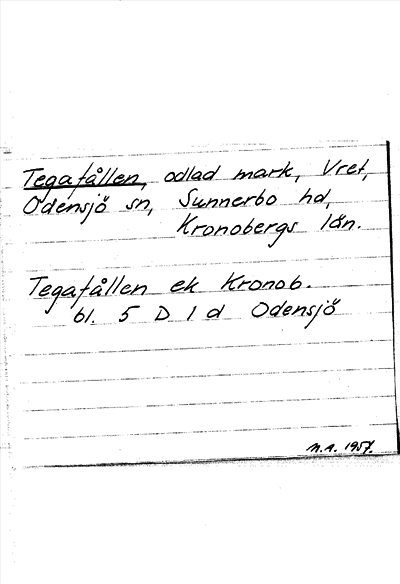 Tegafållen, odlad mark, Vret,
Odensjö sn, Sunnerbo hd,
Kronobergs län.
Tegafållen ek Kronob.
bl. 5 D 1 d Odensjö
N.A. 1957.